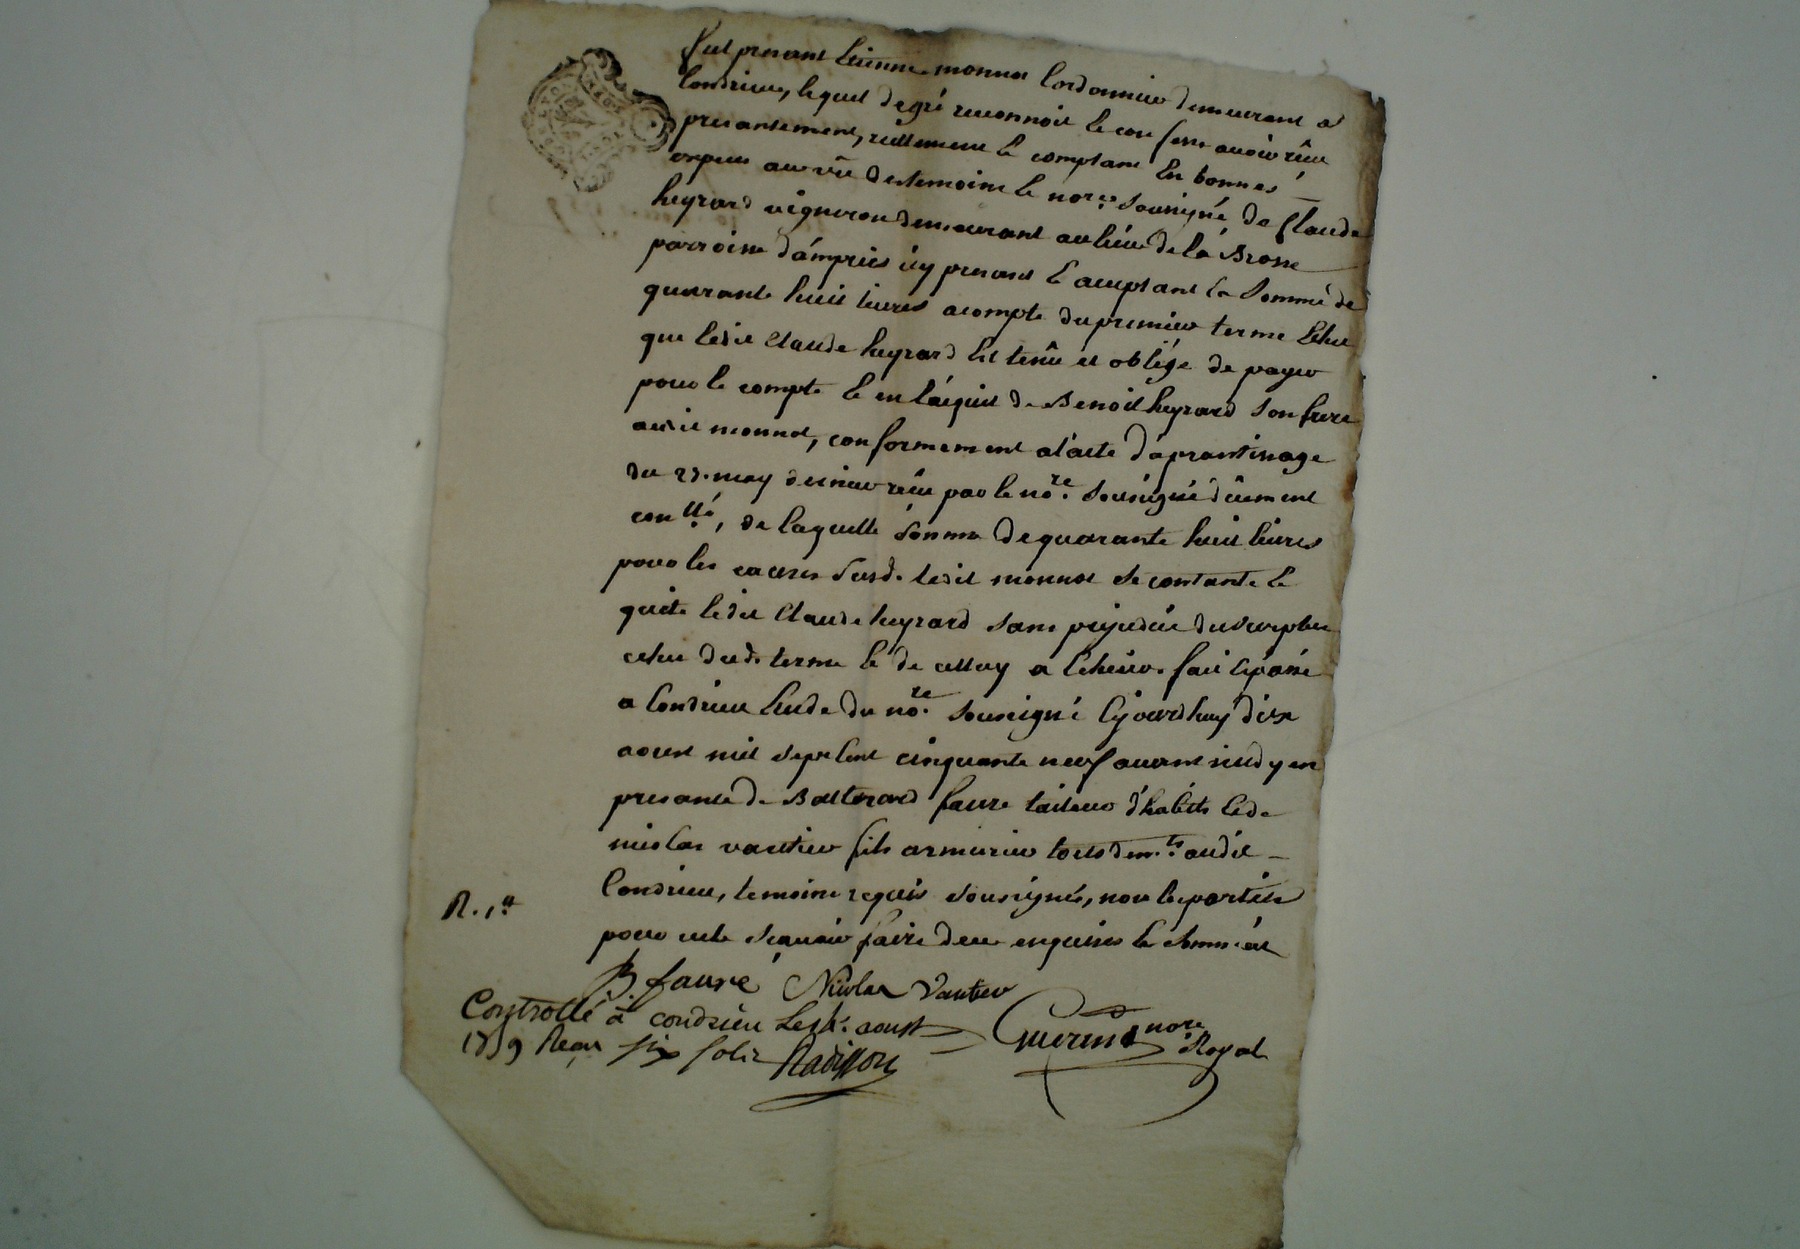 fut presant Etienne monnot Cordonnier demeurant a
Condrieu, lequel de gré reconnoit et confesse avoir rëu
presantement, réellement et comptant En bonnes
especes au vû des temoins et nore. sousigné de Claude
heyrard vigneron demeurant au lieu de la Brosse
parroisse d'ampuis icy presant et acceptant la somme de
quarante huit livres acompte du premier terme Echu
que ledit Claude heyrard Est tenû et obligé de payer
pour le compte et en l'acquit de Benoit heyrard son frere
audit monnot, conformement a l'acte d'aprantissage
du may dernier rëu par le nore. sousigné düement
conllé, de laquelle somme de quarante huit livres
pour les causes susd. ledit monnot se contante et
quite ledit Claude heyrard sans prejudice du surplus
echu dud. terme et de celluy a Echeoir. fait et passé
a Condrieu Etude du nore. sousigné Cejourdhuy dix
aoust mil sept Cent cinquante neuf avant midy en
presance de Balthezard faure tailleur d'habits et de
nicolas vautier fils armurier tous demts. audit
Condrieu, temoins requis sousignés, non les parties
pour ne sçavoir faire de ce enquises et sommées
R. 1a.
B. faure Nicolas Vautier
Controllé a condrieu Le aoust
1759 Recu six sols Radisson
Guerin nore Royal